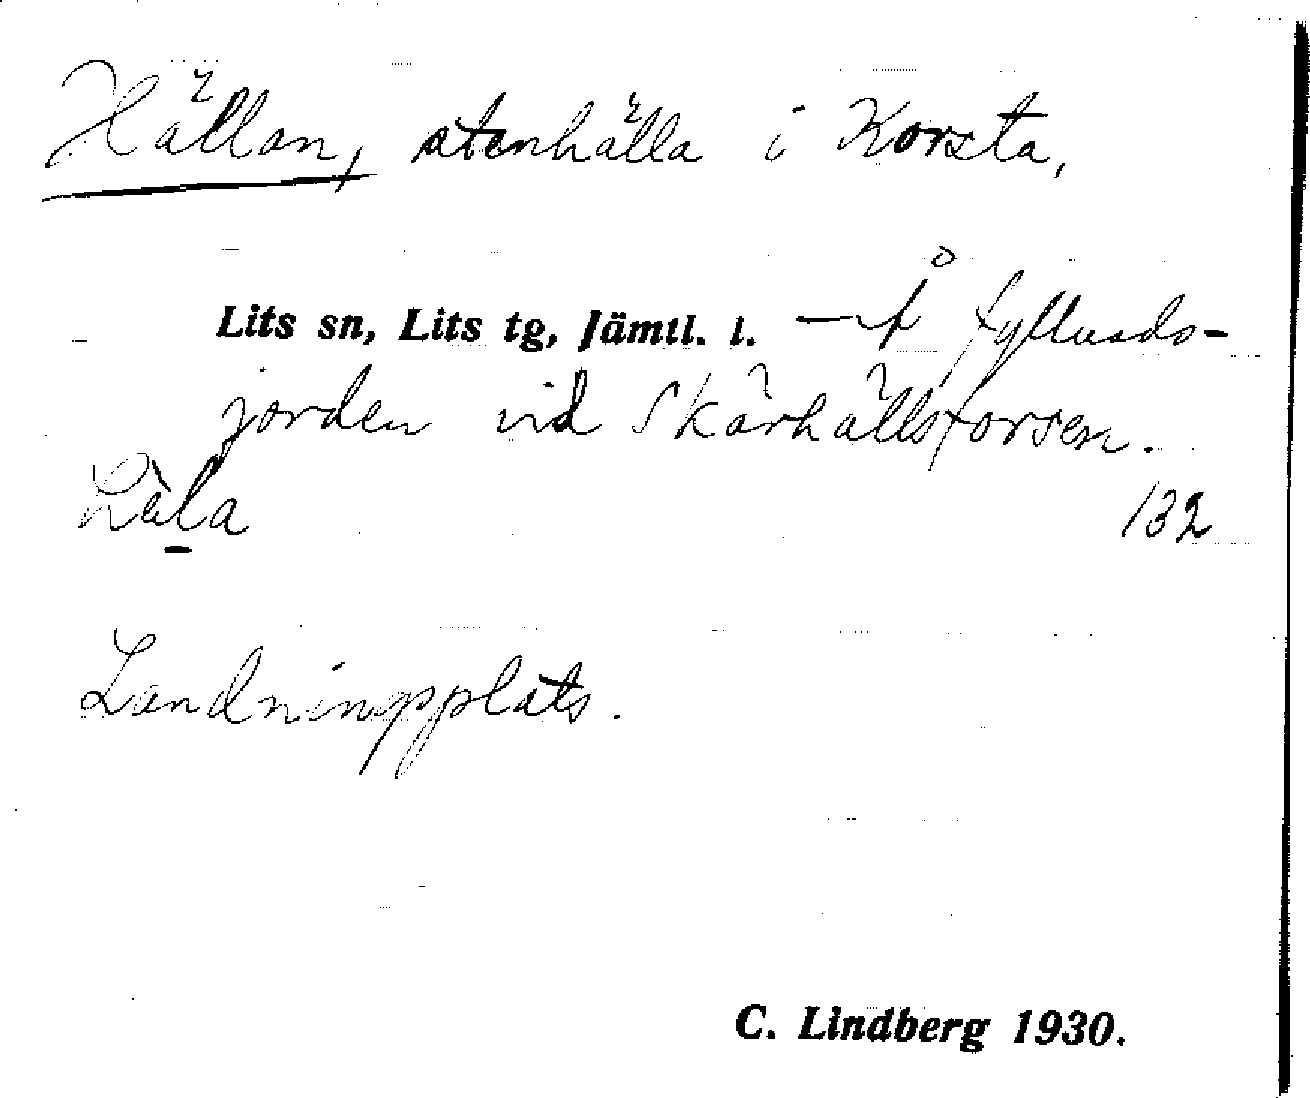 Hällan, stenhälla i Korsta,
Lits sn, Lits tg, Jämtl. l. — På fyllnads-
jorden vid Skärhällsforsen.
132
Landningsplats.
C. Lindberg 1930.